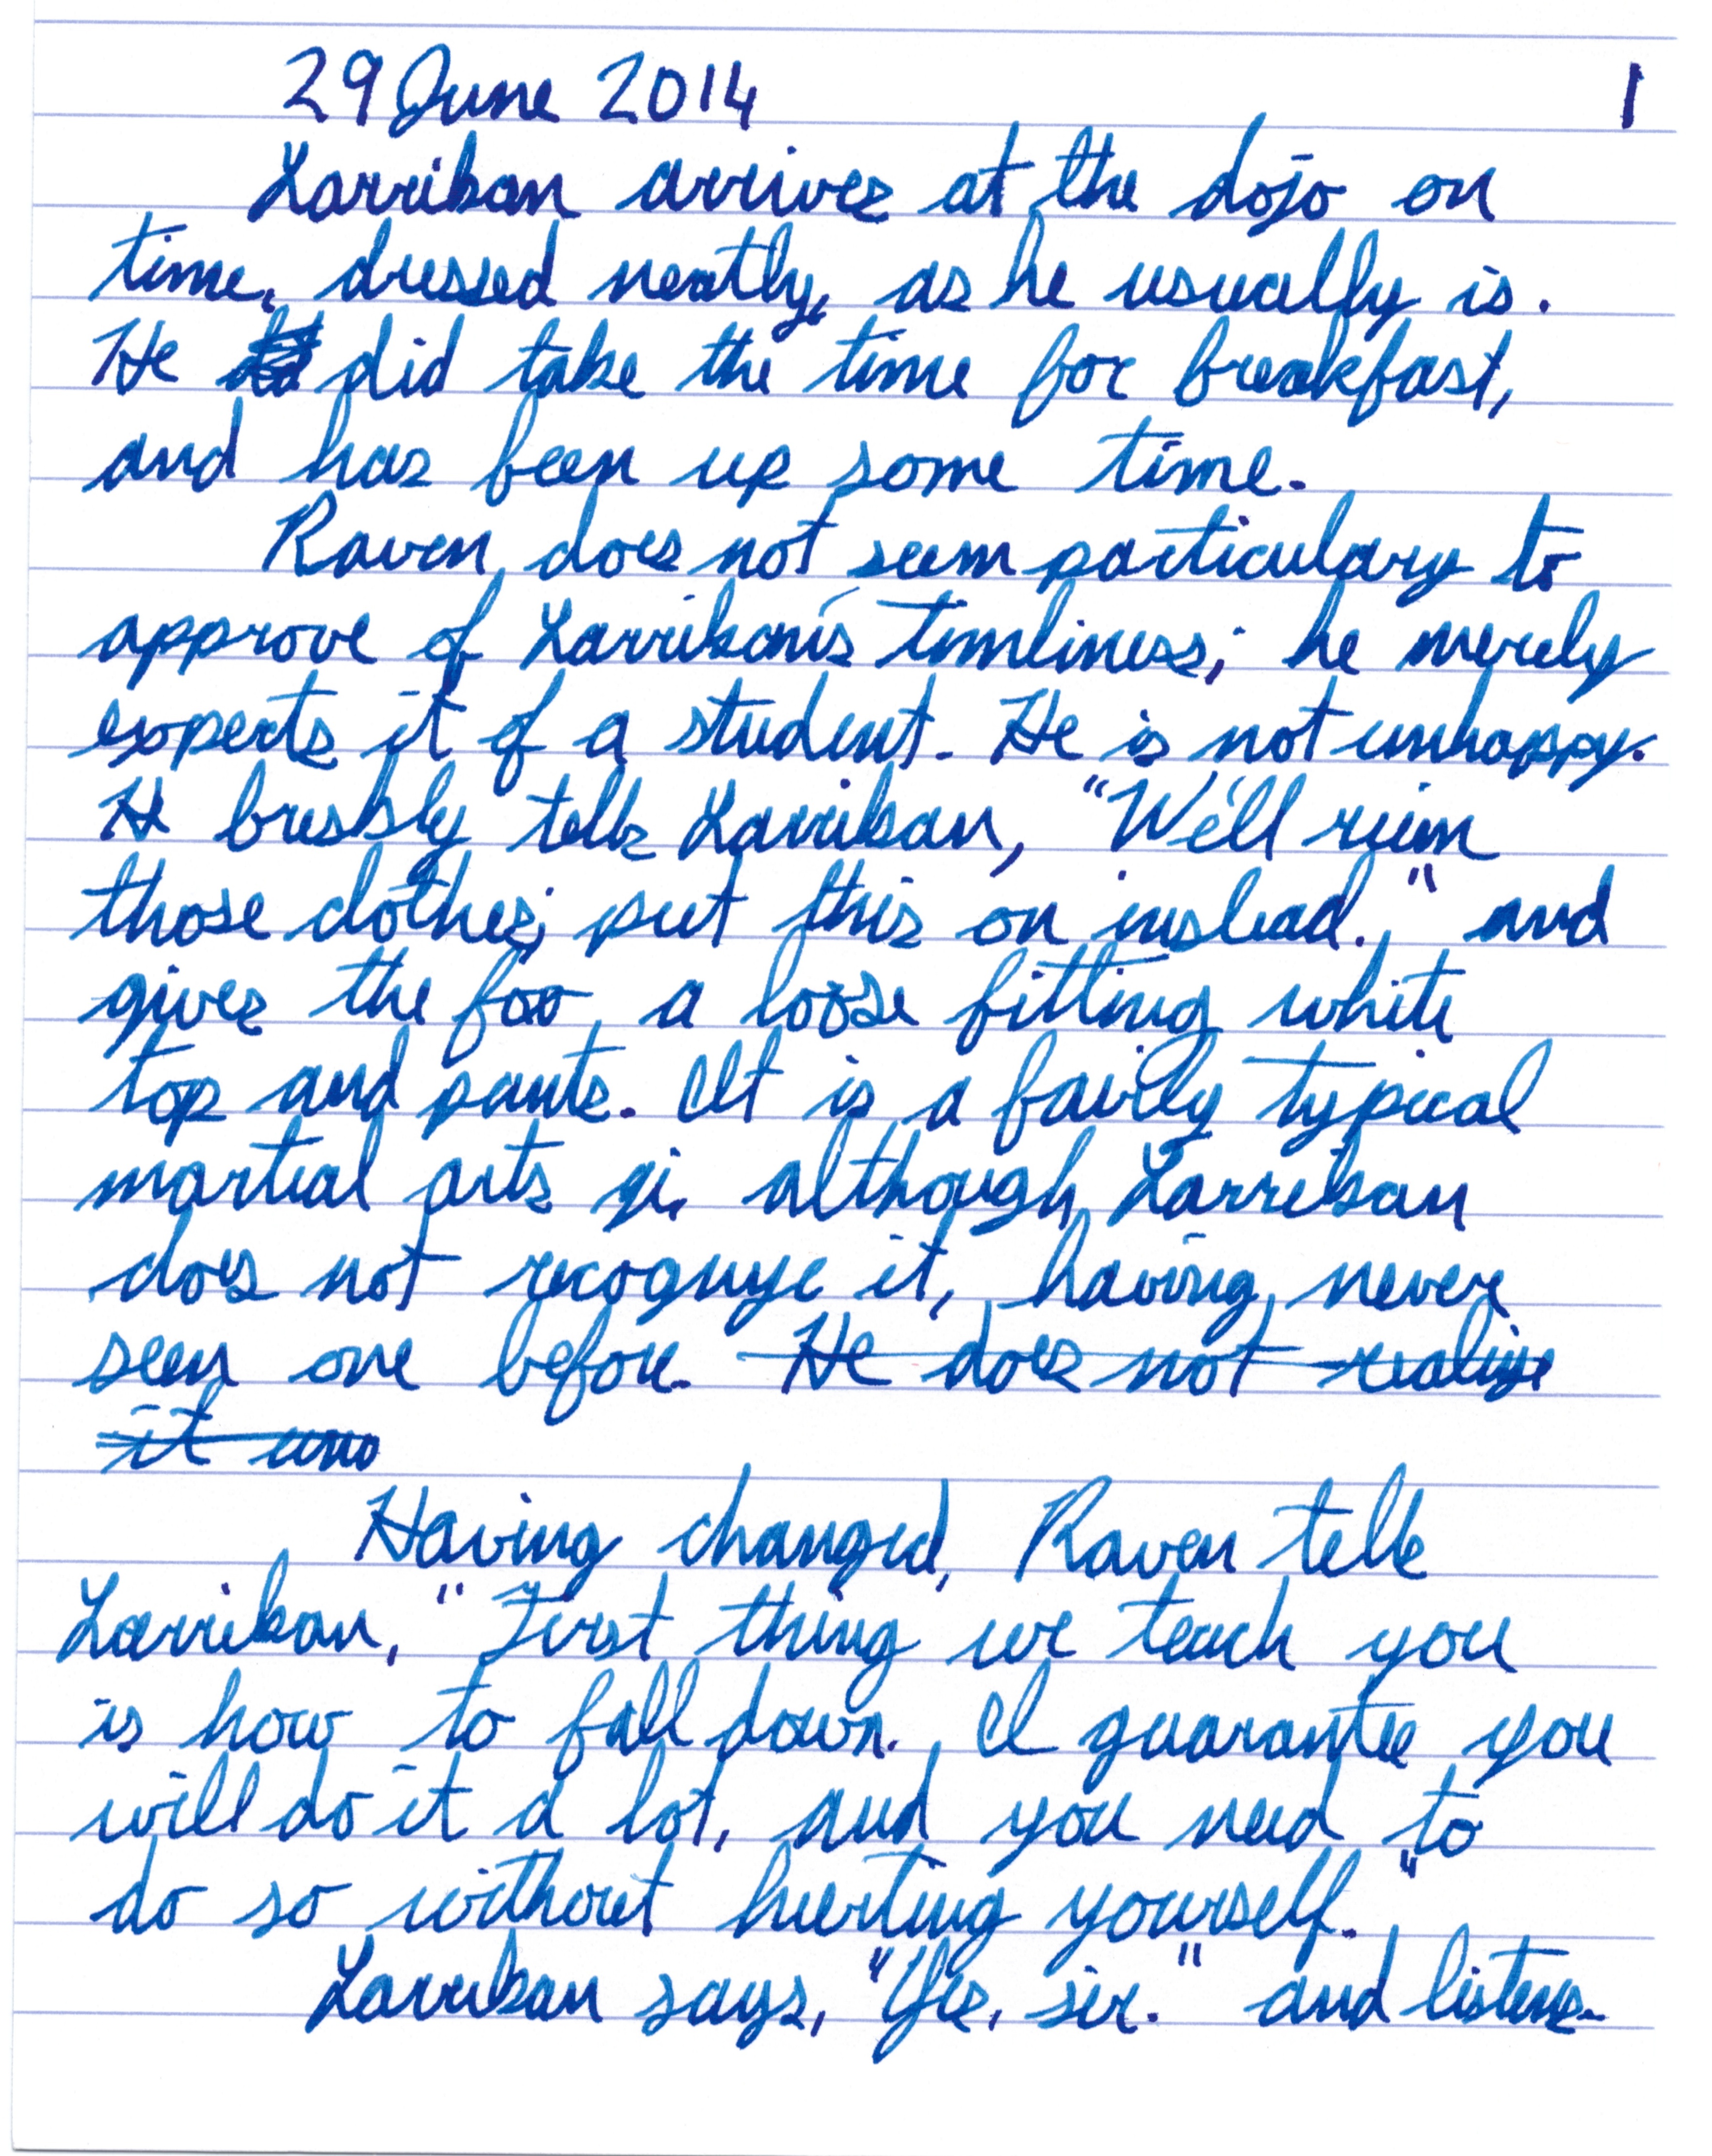 29 June 2014 1
Larriban arrives at the dojo on
time, dressed neatly, as he usually is.
He did take the time for breakfast,
and has been up some time.
Raven does not seem particulary to
approve of Larriban's timliness; he merely
expects it of a student. He is not unhappy.
He briskly tells Larriban, "We'll ruin
those clothes; put this on instead." and
gives the fox a loose fitting white
top and pants. It is a fairly typical
martial arts gi, although Larriban
does not recognize it, having never
seen one before. He does not realize
it
Having changed, Raven tells
Larriban, "First thing we teach you
is how to fall down. I guarantee you
will do it a lot, and you need to
do so without hurting yourself."
Larriban says, "Yes, sir." and listens.